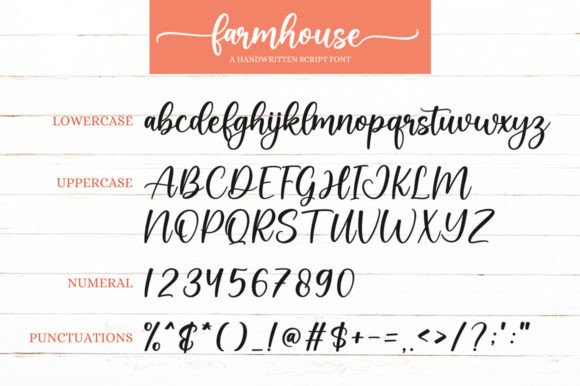 farmhouse
A HANDWRITTEN SCRIPT FONT
LOWERCASE abcdefghijklmnopqrstuvwxyz
UPPERCASE ABCDEFGHIJKLM
NOPQRSTUVWXYZ
NUMERAL 1234567890
PUNCTUATIONS %^&*()_!@#$+-=,.<>/?;':"